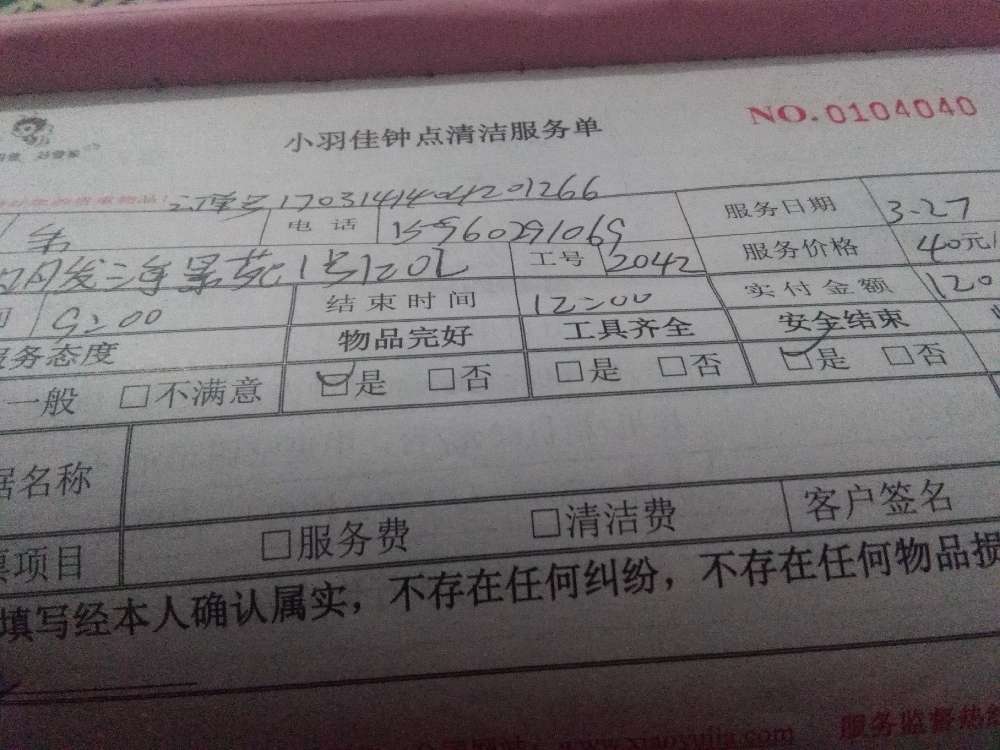 小羽佳钟点清洁服务单 NO.0104040
订单号17031414041201266
电话 15960291069 服务日期 3.27
工号 2042 服务价格 40元/
1号1201
9:00 结束时间 12:00 实付金额 120
服务态度 物品完好 工具齐全 安全结束
一般 □不满意 □是 □否 □是 □否 □是 □否
名称
项目 □服务费 □清洁费 客户签名
填写经本人确认属实，不存在任何纠纷，不存在任何物品损
www.xiaoyujia.com 服务监督热线